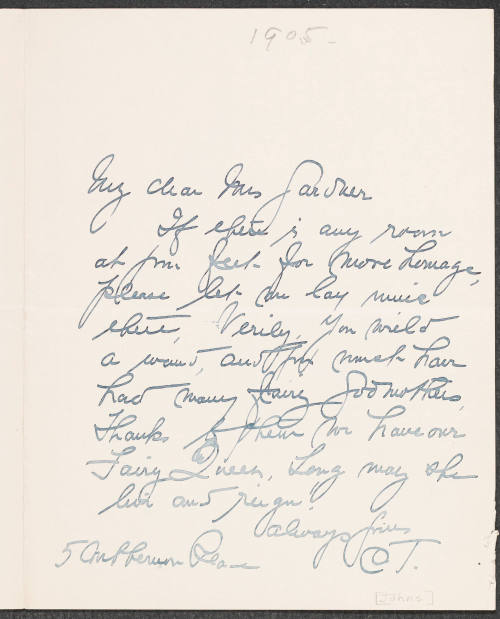 1905-
My dear Mrs Gardner
If there is any room
at your feet for more homage,
please let me lay mine
there, Verily, You wield
a wand, and you must have
had many fairy Godmothers,
Thanks to them we have our
Fairy Queen, Long may she
live and reign!
always yours
C T.
5 Mt Vernon Place
[Johns]